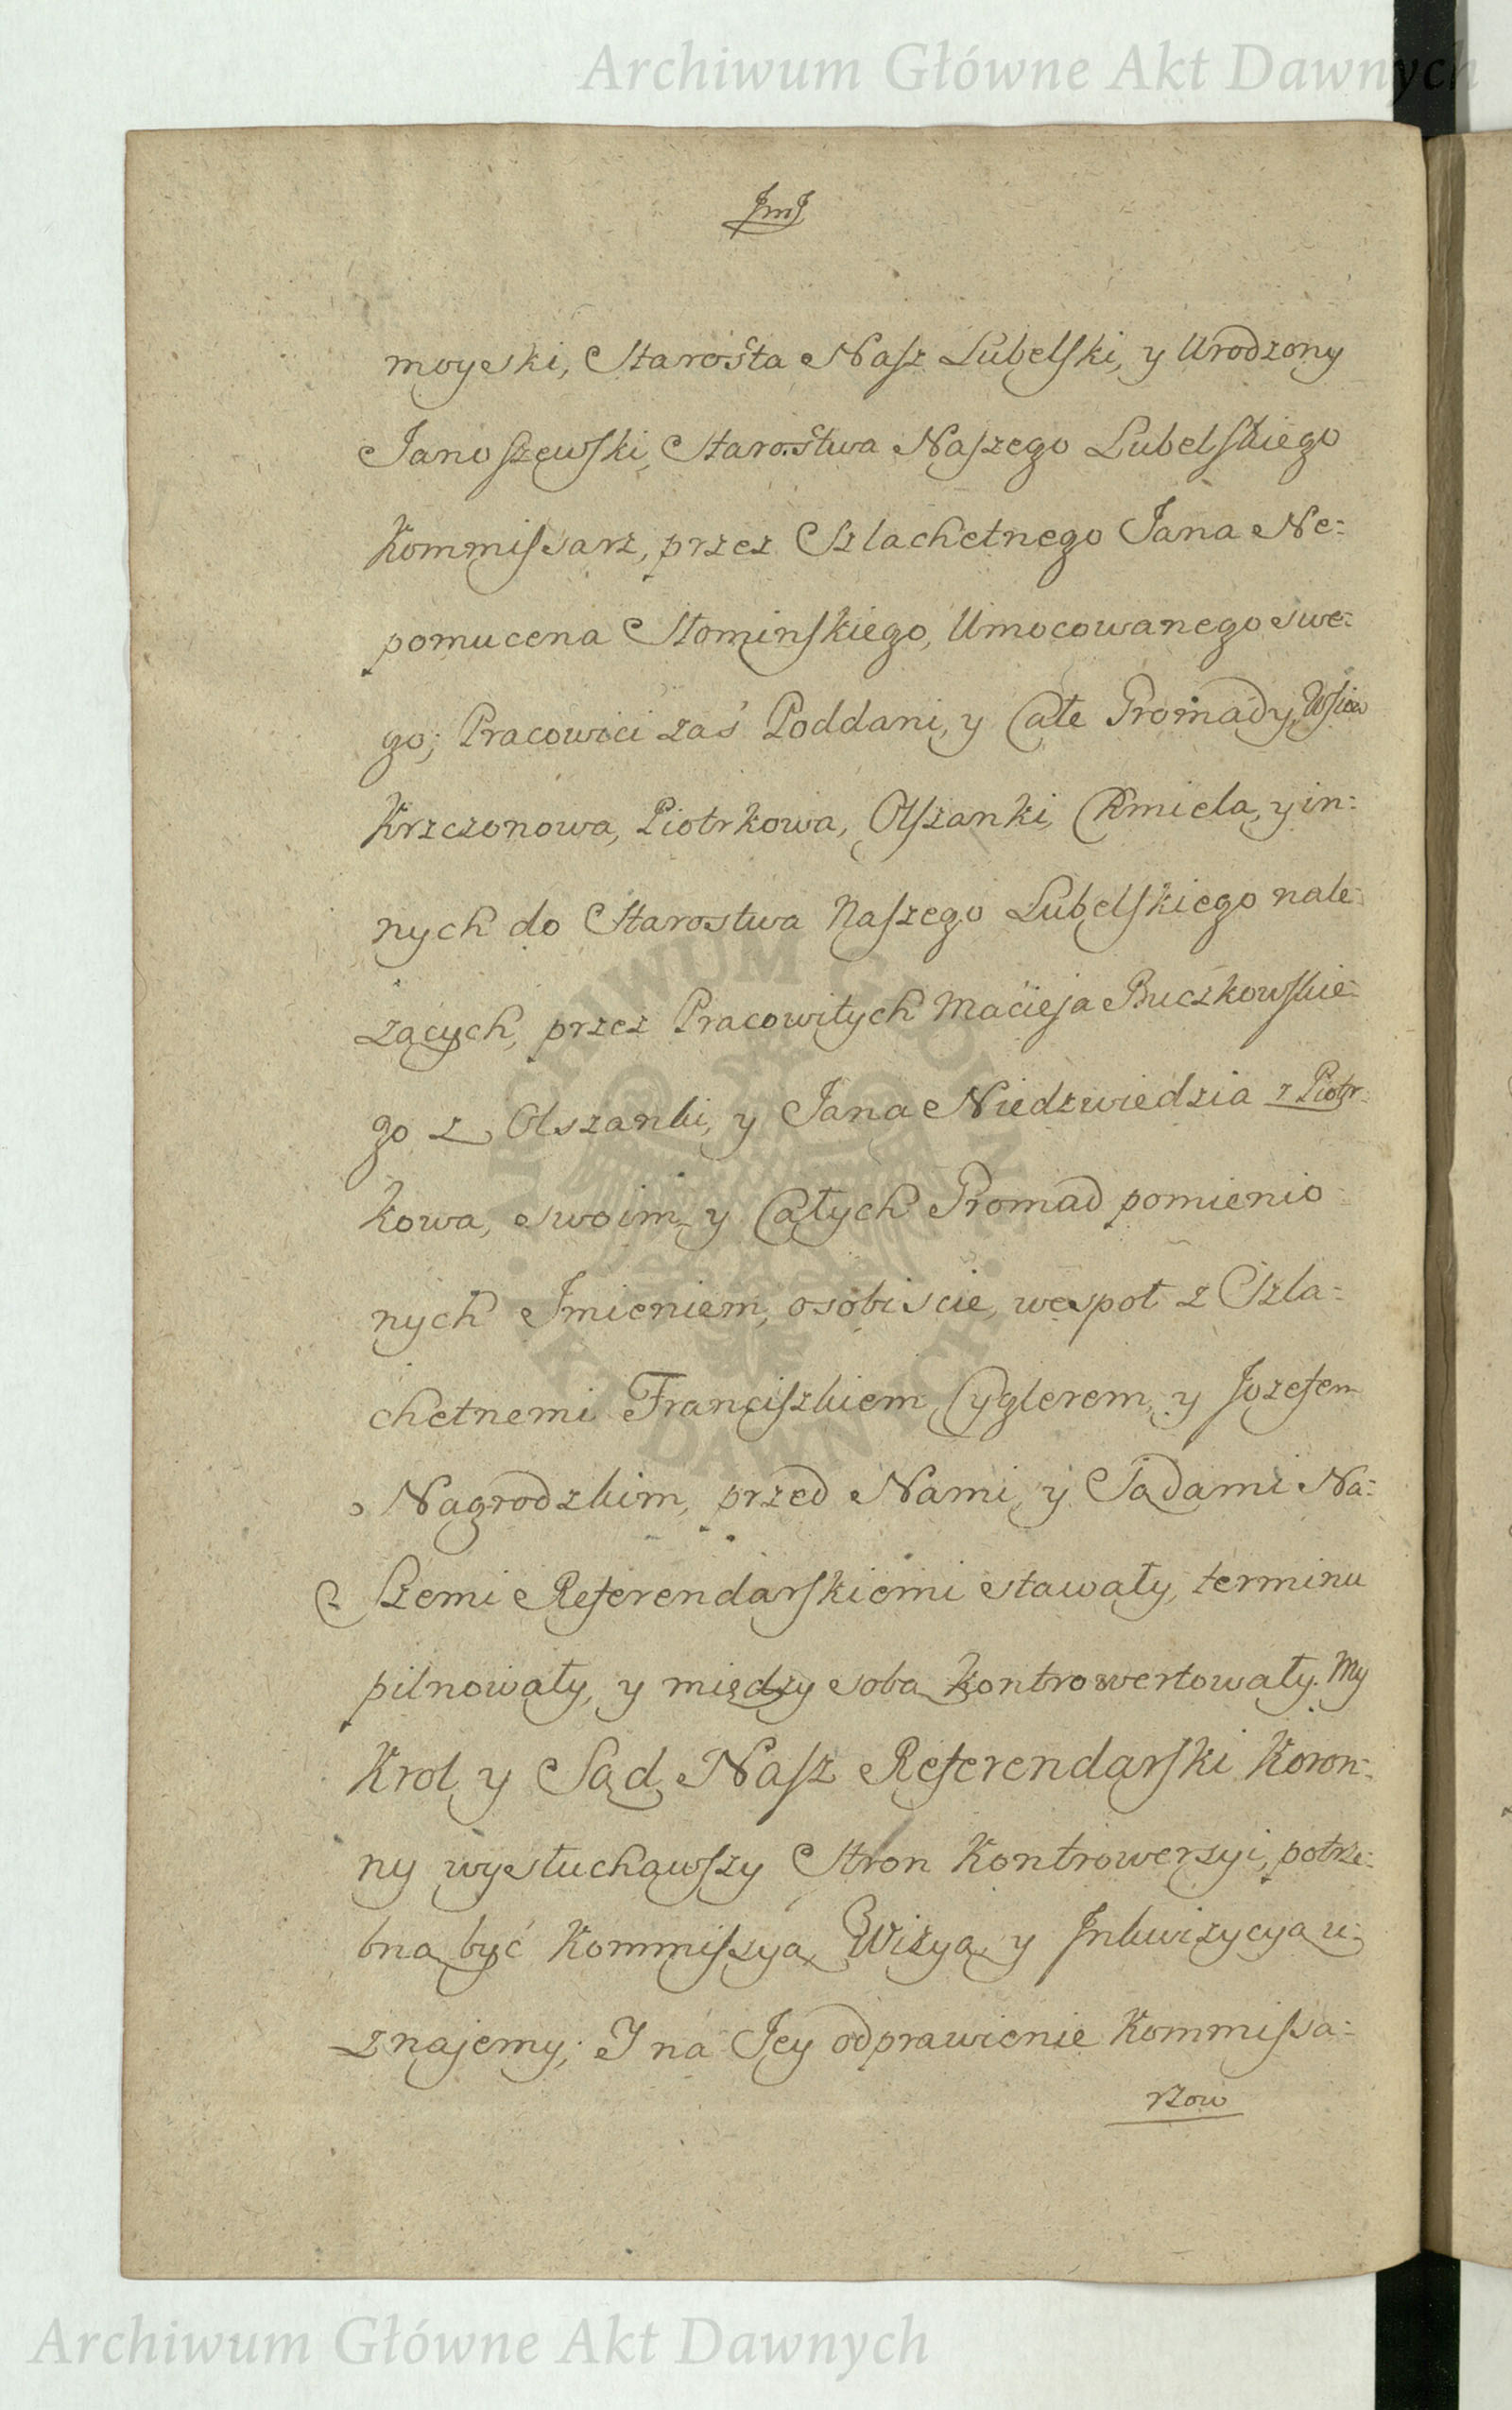 Archiwum Główne Akt Dawnych
JmJ
moyski, Starosta Nasz Lubelski, y Urodzony
Janoszewski, Starostwa Naszego Lubelskiego
Kommissarz, przez Szlachetnego Jana Ne=
pomucena Słominskiego, Umocowanego swe=
go; Pracowici zaś Poddani, y Całe Gromady, Wsiow
Krzczonowa, Piotrkowa, Olszanki, Chmiela, y in=
nych do Starostwa Naszego Lubelskiego nale=
żących, przez Pracowitych Macieja Buczkowskie=
go z Olszanki, y Jana Niedzwiedzia z Piotr=
kowa, swoim y Całych Gromad pomienio=
nych Jmieniem, osobiscie, wespoł z Szla=
chetnemi Franciszkiem Cyglerem, y Jozefem
Nagrodzkim, przed Nami, y Sądami Na=
szemi Referendarskiemi stawały, terminu
pilnowały, y między sobą kontrowertowały. My
Krol y Sąd Nasz Referendarski Koron=
ny wysłuchawszy Stron Kontrowersyi, potrze=
bną być Kommissyą, Wizyą, y Jnkwizycyą u=
znajemy; J na Jey odprawienie Kommissa=
rzow
Archiwum Główne Akt Dawnych
ARCHIWUM GŁÓWNE AKT DAWNYCH